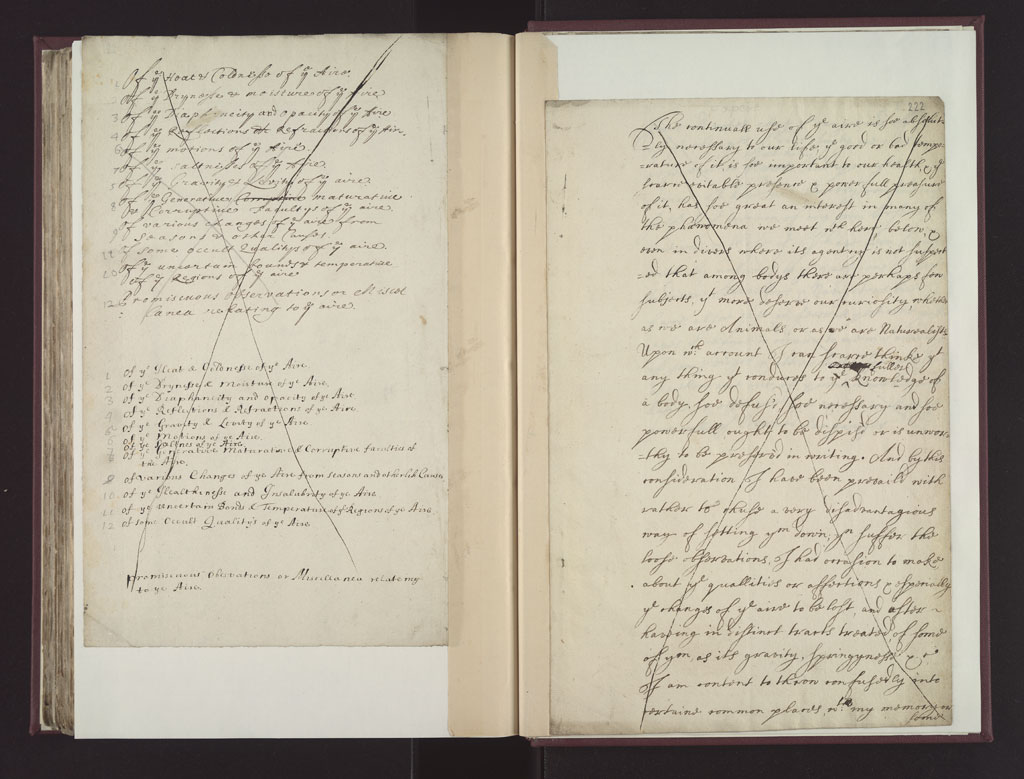 1 Of yͤ Heat & Coldnesse of yͤ Aire.
2 Of yͤ Drynesse & moisture of yͤ Aire
3 Of yͤ Diaphneity and opacity of yͤ Aire
4 Of yͤ Reflections & Refractions of yͤ Air.
6 Of yͤ motions of yͤ Aire.
7 Of yͤ saltnesse of yͤ Aire.
5 Of yͤ Gravity & Levity of yͤ aire.
8 Of yͤ Generative Corruptive maturative
Or Corruptive Facultys of yͤ aire.
9 Of various changes of yͤ aire from
Seasons & other Causes.
11 Of some occult Qualitys of yͤ aire.
10 Of yͤ uncertain bounds & temperature
of yͤ Regions of yͤ aire
12 Promiscuous observations or Miscel
lanea relating to yͤ aire.
1 of yͤ Heat & Coldnesse of yͤ Aire
2 of yͤ Drynesse & Moisture of yͤ Aire.
3 of yͤ Diaphaneity and opacity of yͤ Aire
4 of yͤ Reflections & Refractions of yͤ Aire.
of yͤ Gravity & Levity of yͤ Aire.
of yͤ Motions of yͤ Aire.
of yͤ Saltnes of yͤ Aire
of yͤ Generative Maturative & Corruptive faculties of
the Aire.
9 of Various Changes of yͤ Aire from seasons and other like Causes
10 of yͤ Healthinesse and Insalubrity of yͤ Aire
11 of yͤ uncertain Bonds & Temperature of yͤ Regions of yͤ Aire
12 of some Occult Qualitys of yͤ Aire
Promiscuous Observations or Miscellanea relateing
to yͤ Aire.
222
The continuall use of yͤ aire is soe absolut-
=ly necessary to our life, yͤ good or bad tempe-
=rature of it is soe important to our health, & yͤ
scarce evitable presence & powerfull preasure
of it, has soe great an interest in many of
the phænomena we meet wth here below, &
even in divers where its agency is not suspect
=ed that among bodys there are perhaps few
subjects, yt more deserve our curiosity, whether
as we are Animals, or as we are Naturealists
Upon wch account I can scarce thinke yt
any thing yt conduces to yͤ fuller knowledge of
a body soe defuse soe necessary and soe
powerfull ought to be dispise or is unwor-
=thy to be preserved in writing. And by this
consideration I have been prevaild with
rather to chuse a very disadvantagious
way of setting ym down, yn suffer the
loose observations, I had occasion to make
about yͤ quallities or affections & especially
yͤ changes of yͤ aire to be lost, and after
haveing in distinct tracts treated of some
of ym as its gravity, springynesse & c
I am content to throw confusedly into
certaine common places, wch my memory or
some